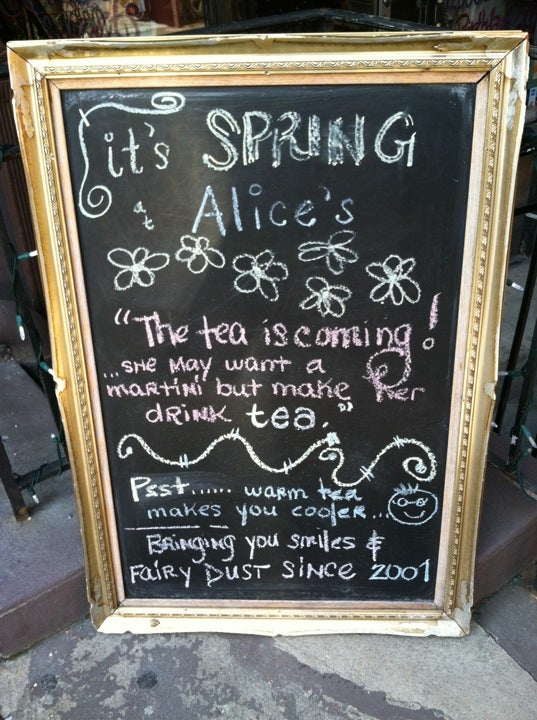 it's SPRING
at Alice's
"The tea is coming!
...SHE MAY WANT a
martini, but make her
drink tea."
Psst...... warm tea
makes you cooler...
Bringing you smiles &
FAIRY DUST SINCE 2001